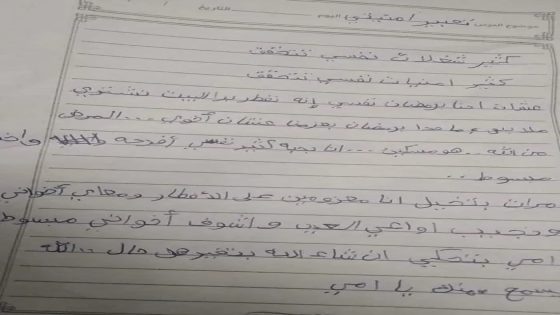 موضوع الدرس تعبير / امنيتي اليوم التاريخ /
كثير شغلات نفسي تتحقق
كثير امنيات نفسي تتحقق
عشان احنا برمضان نفسي إنه نفطر برا البيت نشتري
ملابس وما حدا برمضان يعزمنا عشان أخوي... المرض
من الله.. هو مسكين... انا بحبه كثير نفسي أفرحه
مبسوط..
مرات بتخيل انا معزومين على الافطار ومعاي أخواني
ونجيب اواعي العيد واشوف أخواني مبسوط
امي بتحكي ان شاء الله بتغير حال.. الله
يسمع منك يا امي